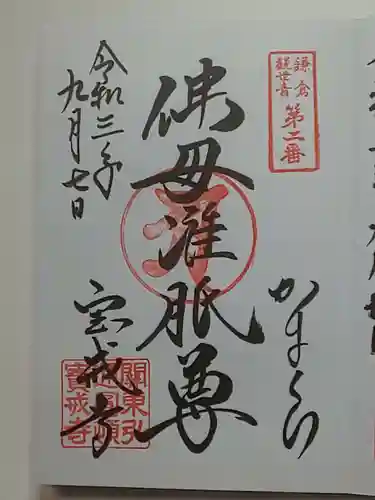 鎌倉
觀世音
第二番
かまくら
佛母准胝尊
令和三年
九月七日
宝戒寺
關東弘
通圓頓
寶戒寺